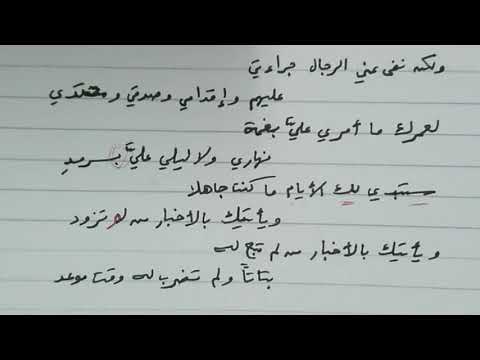 ولكن نفى عني الرجال جراءتي
عليهم وإقدامي وصدقي ومحتدي
لعمرك ما أمري عليَّ بغمة
نهاري ولا ليلي عليَّ بسرمدِ
ستبدي لك الأيام ما كنت جاهلا
ويأتيك بالأخبار من لم تزود
ويأتيك بالأخبار من لم تبع له
بتاتاً ولم تضرب له وقت موعد